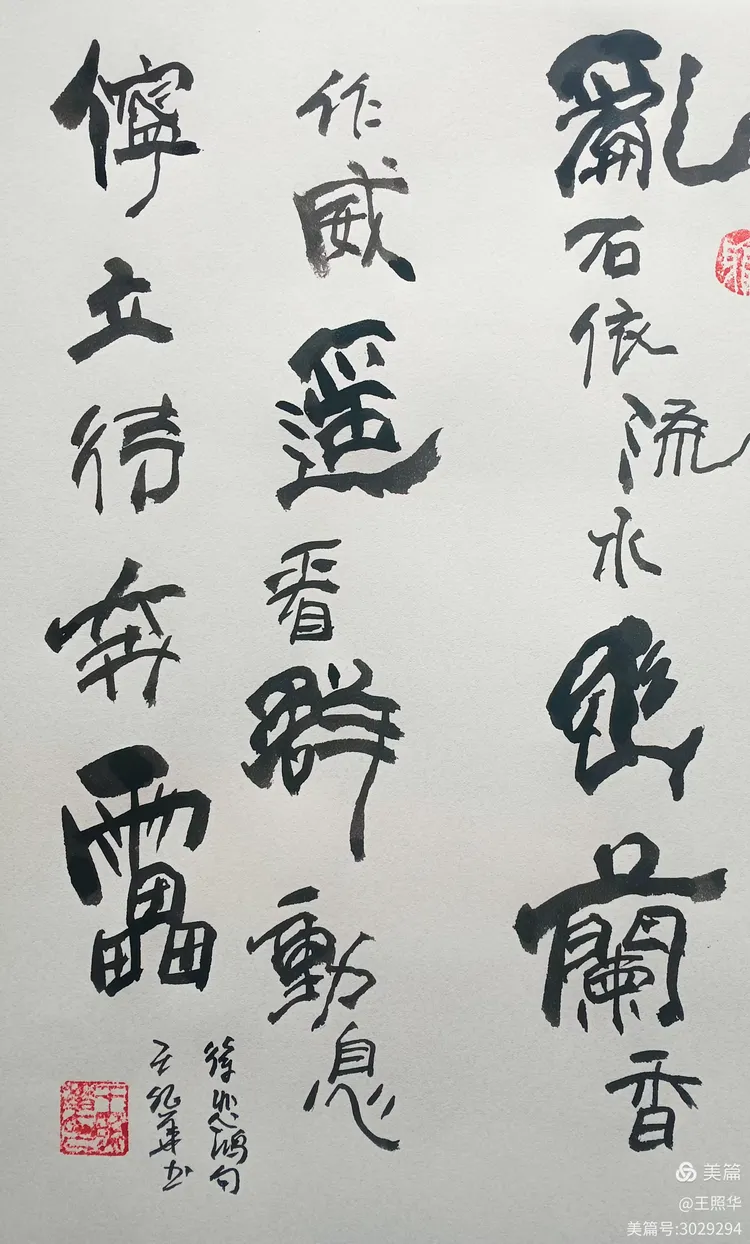 亂石依流水幽蘭香
作威遥看群動息
儜立待奔靁
徐悲鸿句
王照华书
美篇
@王照华
美篇号:3029294